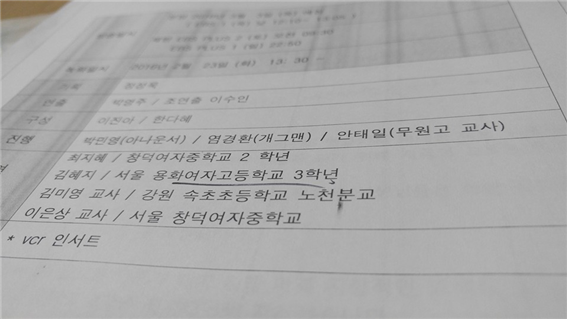 녹화일시 2016년 2월 23일 (화) 13: 30 ~
연출 박영주 / 조연출 이수인
구성 이진아 / 한다혜
진행 박민영(아나운서) / 염경환(개그맨) / 안태일(무원고 교사)
최지혜 / 창덕여자중학교 2 학년
김혜지 / 서울 용화여자고등학교 3학년
김미영 교사 / 강원 속초초등학교 노천분교
이은상 교사 / 서울 창덕여자중학교
* vcr 인서트